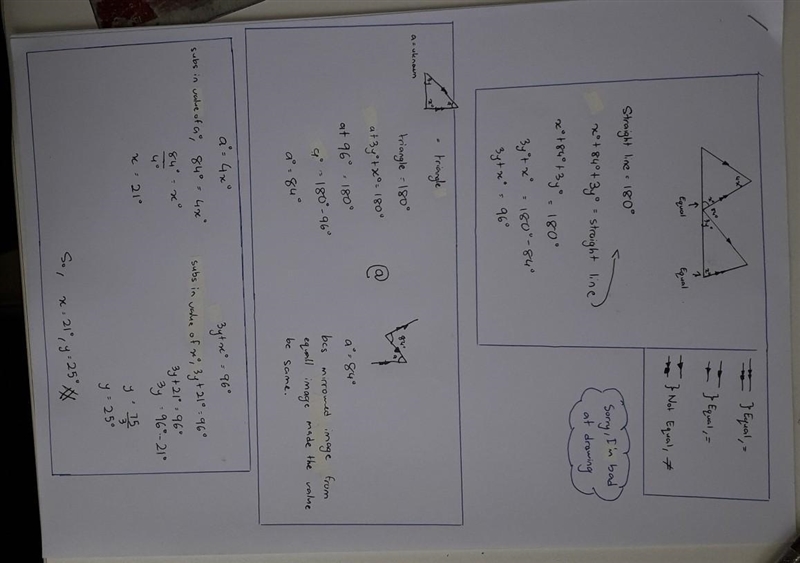 4x°
x° 84° 3y° x°
Equal
Equal
Straight line = 180°
x° + 84° + 3y° = straight line
x° + 84° + 3y° = 180°
3y° + x° = 180° - 84°
3y° + x° = 96°
} Equal, =
} Equal, =
} Not Equal, ≠
Sorry, I'm bad
at drawing
= triangle
a = uknown
triangle = 180°
a + 3y° + x° = 180°
a + 96° = 180°
a° = 180° - 96°
a° = 84°
@
84°
a° = 84°
bcs mirrored image from
equall image made the value
be same.
a° = 4x°
subs in value of a°, 84° = 4x°
84°/4° = x°
x = 21°
3y + x° = 96°
subs in value of x°, 3y + 21° = 96°
3y + 21° = 96°
3y = 96° - 21°
y = 75/3
y = 25°
So, x = 21°, y = 25°